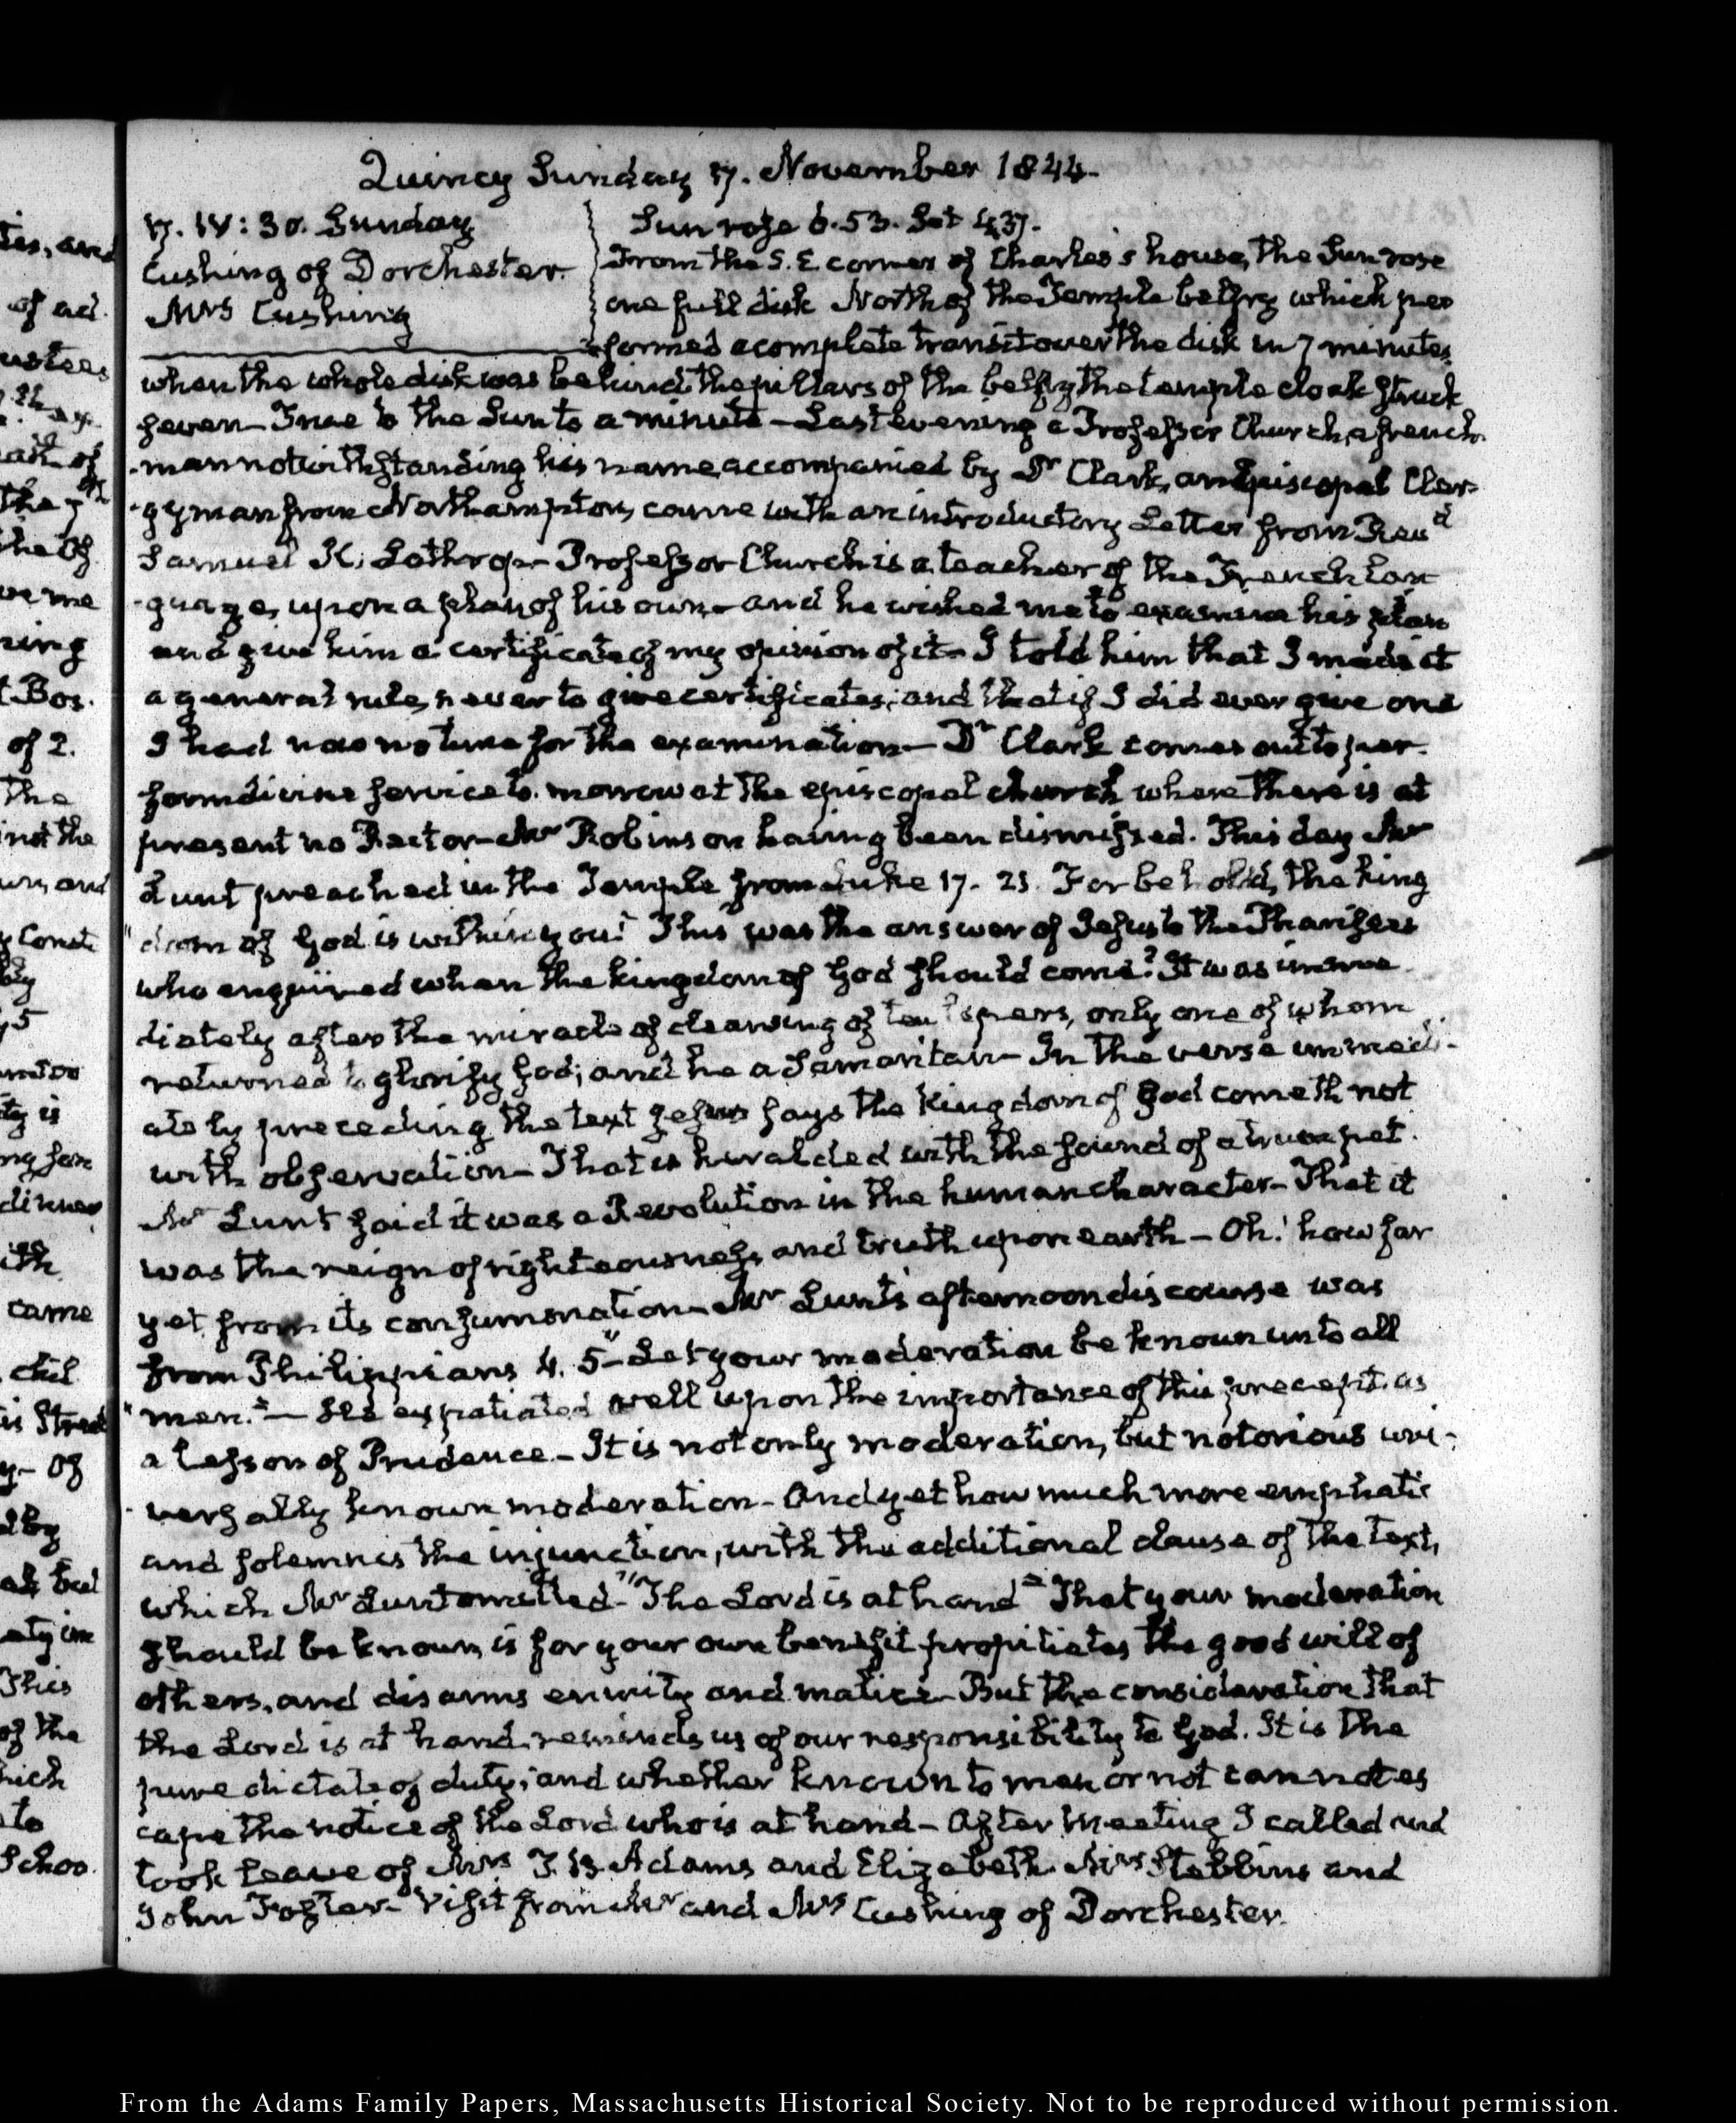 Quincy Sunday 17. November 1844.
17. IV: 30. Sunday
Cushing of Dorchester.
Mrs Cushing
Sun rose 6.53. Set 4.37.
From the S. E corner of Charles's house, the Sun rose
one full disk North of the Temple belfry which per
formed a complete transit over the disk in 7 minutes
when the whole disk was behind the pillars of the belfry the temple clock struck
seven— True to the Sun to a minute— Last evening a Professor Church, a french
-man notwithstanding his name accompanied by Dr Clark, an Episcopal Cler-
-gyman from Northampton, came with an introductory Letter from Revd
Samuel K. Lothrop— Professor Church is a teacher of the French Lan
-guage, upon a plan of his own— and he wished me to examine his plan
and give him a certificate of my opinion of it— I told him that I made it
a general rule, never to give certificates; and that if I did ever give one
I had now no time for the examination— Dr Clark comes out to per-
form divine service to-morrow at the episcopal church where there is at
present no Rector— Mr Robinson having been dismissed. This day Mr
Lunt preached in the Temple from Luke 17. 21. For behold, the king
"dom of God is within you." This was the answer of Jesus to the Pharisees
who enquired when the kingdom of God should come? It was imme
diately after the miracle of cleansing of ten lepers, only one of whom
returned to glorify God; and he a Samaritan— In the verse immedi-
ately preceding the text Jesus says the kingdom of God cometh not
with observation— That is heralded with the sound of a trumpet.
Mr Lunt said it was a Revolution in the human character— That it
was the reign of righteousness, and truth upon earth— Oh! how far
yet from its consummation— Mr Lunt's afternoon discourse was
from Philippians 4. 5 "Let your moderation be known unto all
"men."— He expatiated well upon the importance of this precept as
a Lesson of Prudence— It is not only moderation, but notorious uni-
-versally known moderation— And yet how much more emphatic
and solemn is the injunction, with the additional clause of the text,
which Mr Lunt omitted— "The Lord is at hand" That your moderation
should be known, is for your own benefit propitiates the good will of
others, and disarms enmity and malice— But the consideration that
the Lord is at hand, reminds us of our responsibility to God. It is the
pure dictate of duty; and whether known to men or not cannot es
cape the notice of the Lord who is at hand— After Meeting I called and
took leave of Mrs T. B. Adams and Elizabeth. Mrs Stebbins and
John Foster— Visit from Mr and Mrs Cushing of Dorchester.
From the Adams Family Papers, Massachusetts Historical Society. Not to be reproduced without permission.